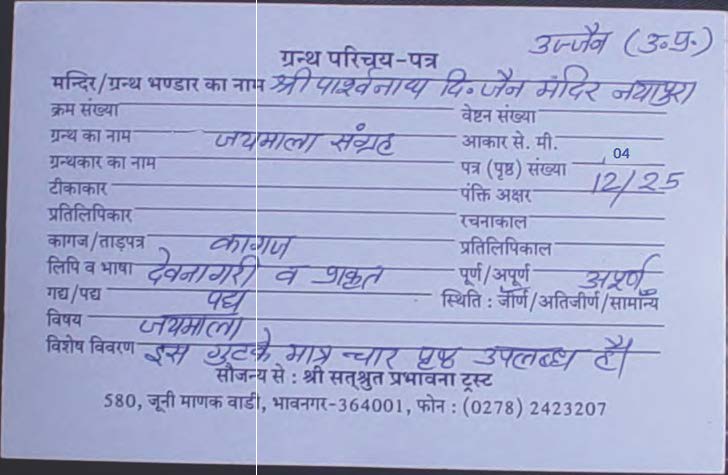 उज्जैन (उ.प्र.)
ग्रन्थ परिचय-पत्र
मन्दिर/ग्रन्थ भण्डार का नाम श्री पार्श्वनाथ दि. जैन मंदिर नयापुरा
क्रम संख्या वेष्टन संख्या
ग्रन्थ का नाम जयमाला संग्रह आकार से. मी.
ग्रन्थकार का नाम पत्र (पृष्ठ) संख्या 04
टीकाकार पंक्ति अक्षर 12/25
प्रतिलिपिकार रचनाकाल
कागज/ताड़पत्र कागज प्रतिलिपिकाल
लिपि व भाषा देवनागरी व प्राकृत पूर्ण/अपूर्ण अपूर्ण
गद्य/पद्य पद्य स्थिति : जीर्ण/अतिजीर्ण/सामान्य
विषय जयमाला
विशेष विवरण इस गुटके मात्र चार पृष्ठ उपलब्ध है।
सौजन्य से : श्री सत्श्रुत प्रभावना ट्रस्ट
580, जूनी माणक वाडी, भावनगर-364001, फोन : (0278) 2423207